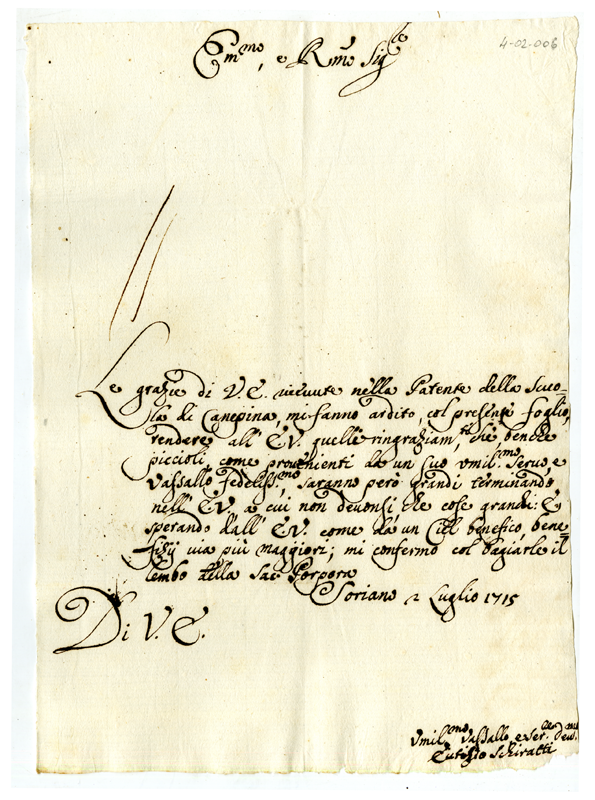 4-02.006
Em.mo, e R.mo Sig.re
Le grazie di V E. riceuute nella Patente della Scuo-
la di Canepina, mi fanno ardito, col presente foglio,
rendere all' E.V. quelle ringraziam.ti che, benche
piccioli, come prouenienti da un suo vmil.mo Seruo, e
Vassallo fedeliss.mo, saranno però grandi terminando
nell' E.V. a cui non deuonsi, che cose grandi: E
sperando dall' E.V. come da un Ciel benefico, bene=
fizij uia più maggiori; mi confermo col bagiarle il
lembo della Sac. Porpora
Soriano 2 Luglio 1715
Di V. E.
Vmil.mo Vassallo, e Ser.
Schiratti